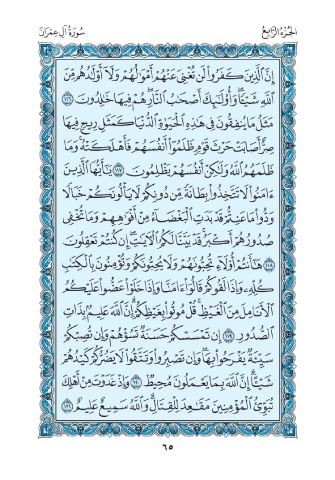 الجزء الرابع
سورة آل عمران
إِنَّ الَّذِينَ كَفَرُوا لَنْ تُغْنِيَ عَنْهُمْ أَمْوَالُهُمْ وَلَا أَوْلَادُهُمْ مِنَ
اللَّهِ شَيْئًا وَأُولَئِكَ أَصْحَابُ النَّارِ هُمْ فِيهَا خَالِدُونَ ١١٦
مَثَلُ مَا يُنْفِقُونَ فِي هَذِهِ الْحَيَاةِ الدُّنْيَا كَمَثَلِ رِيحٍ فِيهَا
صِرٌّ أَصَابَتْ حَرْثَ قَوْمٍ ظَلَمُوا أَنْفُسَهُمْ فَأَهْلَكَتْهُ وَمَا
ظَلَمَهُمُ اللَّهُ وَلَكِنْ أَنْفُسَهُمْ يَظْلِمُونَ ١١٧ يَا أَيُّهَا الَّذِينَ
آمَنُوا لَا تَتَّخِذُوا بِطَانَةً مِنْ دُونِكُمْ لَا يَأْلُونَكُمْ خَبَالًا
وَدُّوا مَا عَنِتُّمْ قَدْ بَدَتِ الْبَغْضَاءُ مِنْ أَفْوَاهِهِمْ وَمَا تُخْفِي
صُدُورُهُمْ أَكْبَرُ قَدْ بَيَّنَّا لَكُمُ الْآيَاتِ إِنْ كُنْتُمْ تَعْقِلُونَ
١١٨ هَا أَنْتُمْ أُولَاءِ تُحِبُّونَهُمْ وَلَا يُحِبُّونَكُمْ وَتُؤْمِنُونَ بِالْكِتَابِ
كُلِّهِ وَإِذَا لَقُوكُمْ قَالُوا آمَنَّا وَإِذَا خَلَوْا عَضُّوا عَلَيْكُمُ
الْأَنَامِلَ مِنَ الْغَيْظِ قُلْ مُوتُوا بِغَيْظِكُمْ إِنَّ اللَّهَ عَلِيمٌ بِذَاتِ
الصُّدُورِ ١١٩ إِنْ تَمْسَسْكُمْ حَسَنَةٌ تَسُؤْهُمْ وَإِنْ تُصِبْكُمْ
سَيِّئَةٌ يَفْرَحُوا بِهَا وَإِنْ تَصْبِرُوا وَتَتَّقُوا لَا يَضُرُّكُمْ كَيْدُهُمْ
شَيْئًا إِنَّ اللَّهَ بِمَا يَعْمَلُونَ مُحِيطٌ ١٢٠ وَإِذْ غَدَوْتَ مِنْ أَهْلِكَ
تُبَوِّئُ الْمُؤْمِنِينَ مَقَاعِدَ لِلْقِتَالِ وَاللَّهُ سَمِيعٌ عَلِيمٌ ١٢١
٦٥